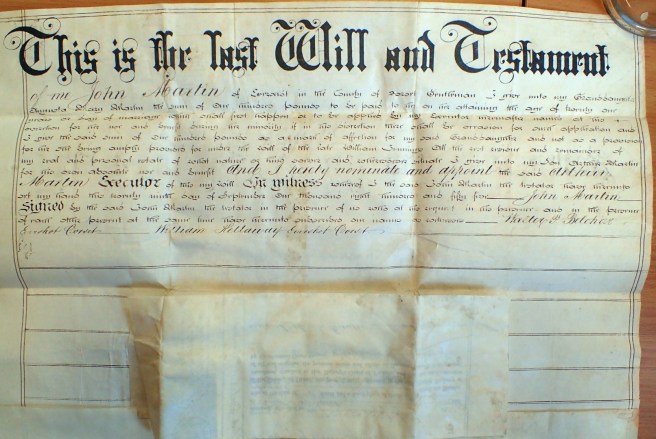 This is the last Will and Testament
of me John Martin of Evercreech in the County of Somerset Gentleman I give unto my Granddaughter
Augusta Mary Martin the sum of One hundred pounds to be paid to her on her attaining the age of twenty one
years or day of marriage which shall first happen or to be applied by my Executor hereinafter named at his
discretion for her use and benefit during her minority if in his discretion there shall be occasion for such application and
I give the said sum of One hundred pounds as a mark of affection for my said Granddaughter and not as a provision
for her she being amply provided for under the will of the late William All the rest residue and remainder of
my real and personal estate of what nature or kind soever and wheresoever situate I give unto my Son Arthur Martin
for his own absolute use and benefit And I hereby nominate and appoint the said Arthur
Martin Executor of this my Will In witness whereof I the said John Martin the testator have hereunto
set my hand this twenty ninth day of September One thousand eight hundred and fifty five John Martin
Signed by the said John Martin the testator in the presence of us who at his request in his presence and in the presence
of each other present at the same time have hereunto subscribed our names as witnesses
William Court